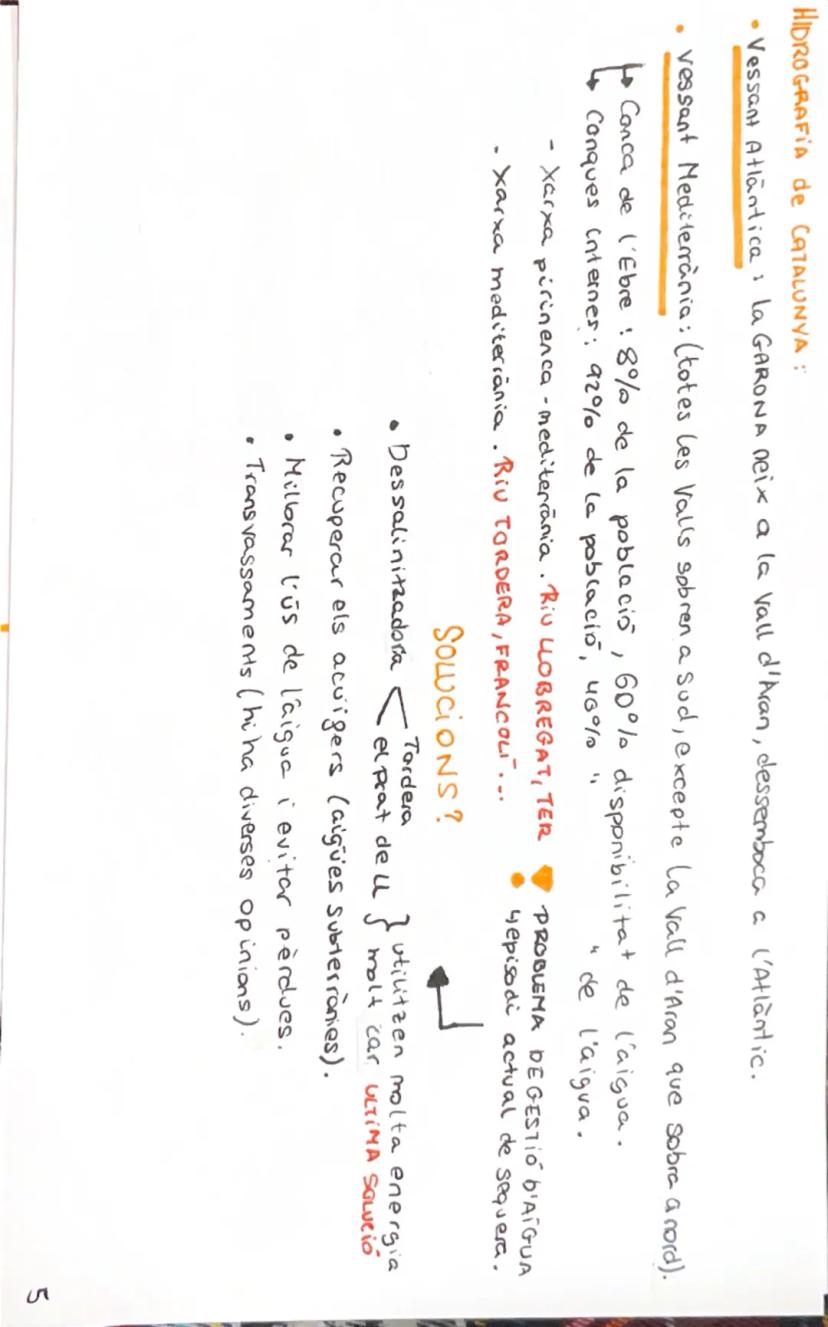 HIDROGRAFIA de CATALUNYA:
• Vessant Atlàntica: la GARONA neix a la Vall d'Aran, dessemboca a l'Atlàntic.
• Vessant Mediterrània: (totes les Valls s'obren a sud, excepte la Vall d'Aran que s'obra a nord).
↳ Conca de l'Ebre: 8% de la població, 60% disponibilitat de l'aigua.
↳ Conques internes: 92% de la població, 40% " " de l'aigua.
- Xarxa pirinenca-mediterrània. RIU LLOBREGAT, TER
- Xarxa mediterrània. RIU TORDERA, FRANCOLÍ...
PROBLEMA DE GESTIÓ D'AIGUA
episodi actual de sequera.
SOLUCIONS?
• Dessalinitzadora < Tordera
el prat de LL } utilitzen molta energia
molt car ULTIMA SOLUCIÓ
• Recuperar els aqüífers (aigües subterrànies).
• Millorar l'ús de l'aigua i evitar pèrdues.
• Transvassaments (hi ha diverses opinions).
5